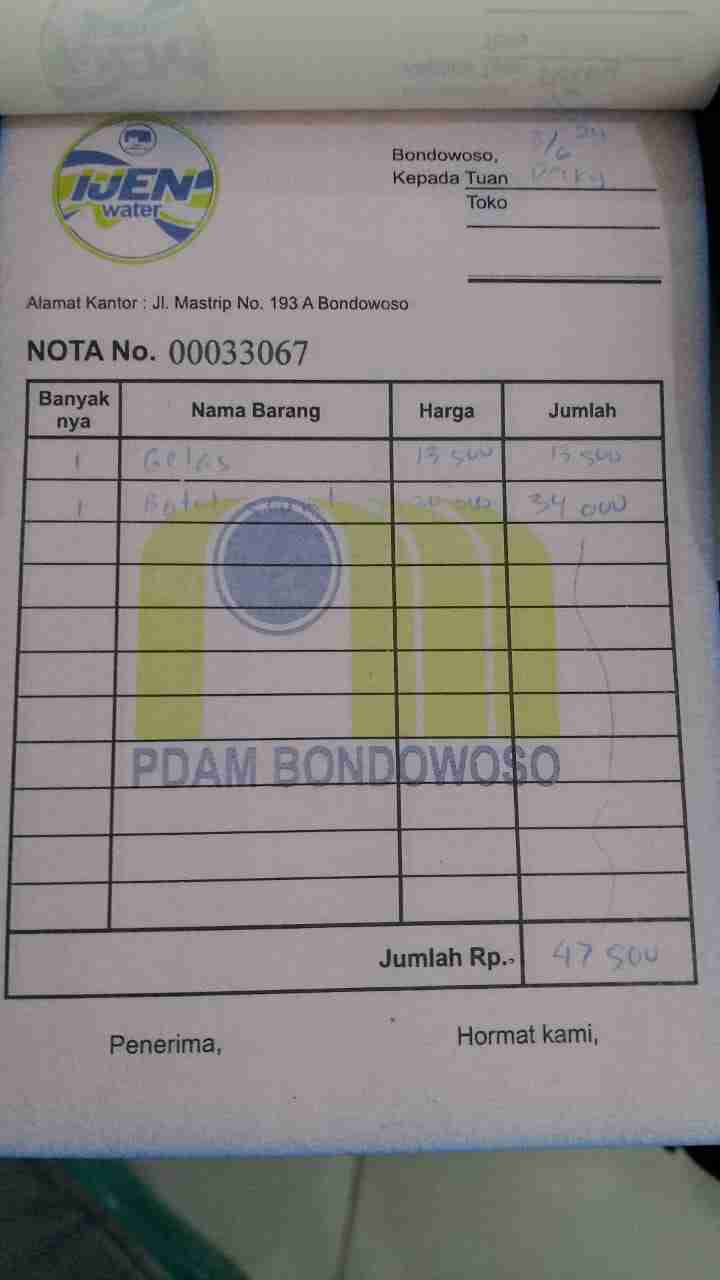 IJEN
water
Bondowoso, 3/6 24
Kepada Tuan
Toko
Alamat Kantor : Jl. Mastrip No. 193 A Bondowoso
NOTA No. 00033067
Banyak nya Nama Barang Harga Jumlah
1 Gelas 13 500 13 500
1 34 000
PDAM BONDOWOSO
Jumlah Rp. 47 500
Penerima, Hormat kami,